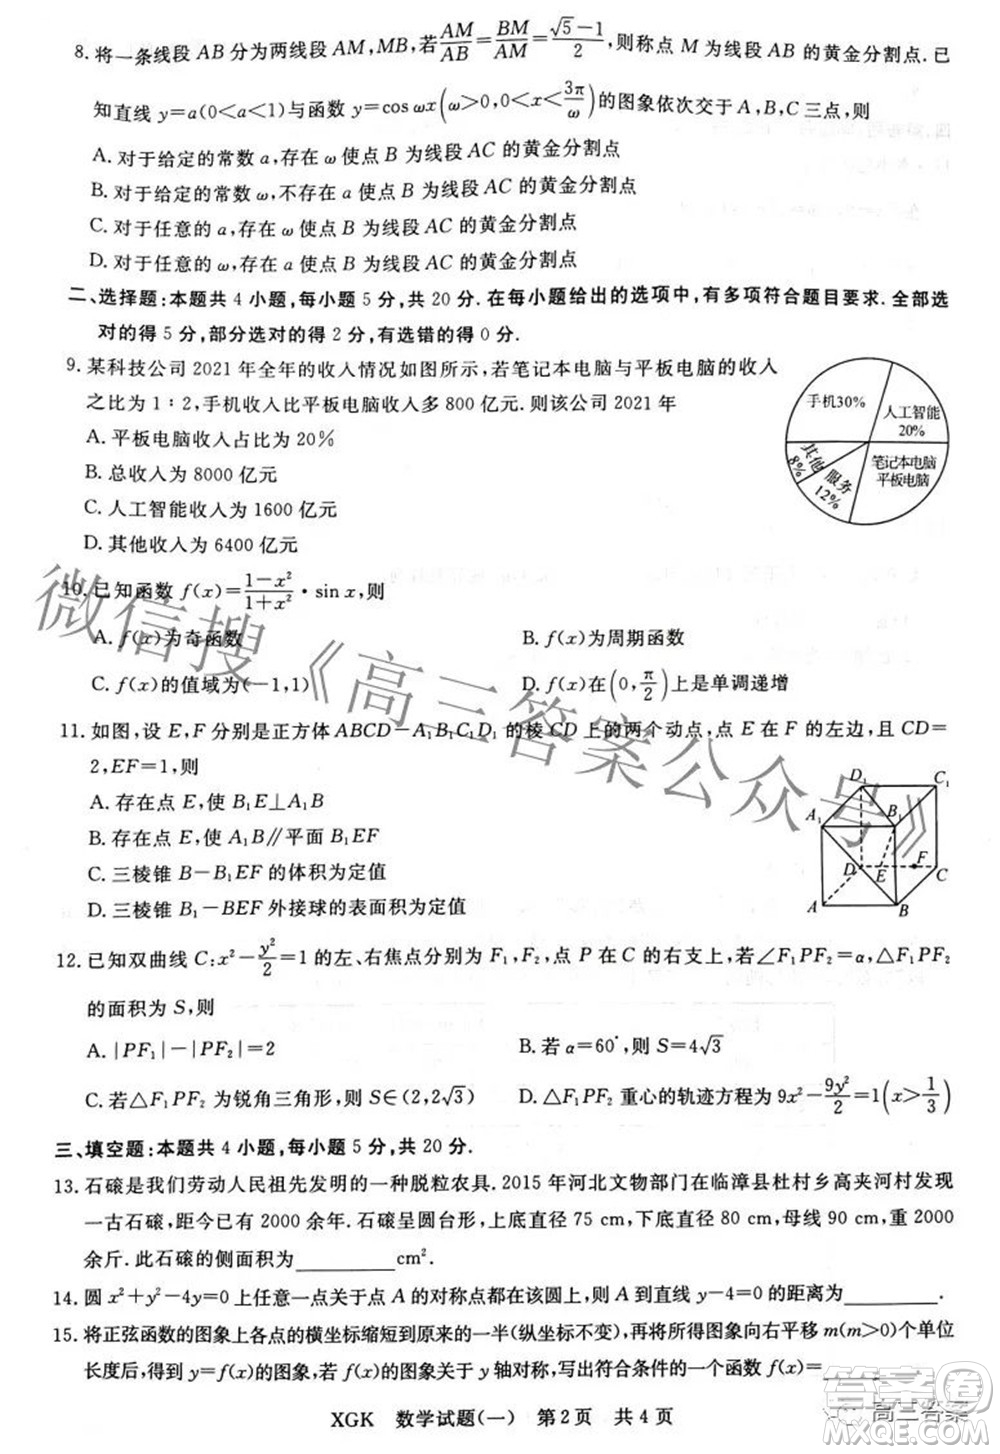 8. 将一条线段 AB 分为两线段 AM, MB, 若 AM/AB = BM/AM = (√5−1)/2, 则称点 M 为线段 AB 的黄金分割点. 已
知直线 y=a(0<a<1)与函数 y=cos ωx(ω>0, 0<x<3π/ω)的图象依次交于 A, B, C 三点, 则
A. 对于给定的常数 a, 存在 ω 使点 B 为线段 AC 的黄金分割点
B. 对于给定的常数 ω, 不存在 a 使点 B 为线段 AC 的黄金分割点
C. 对于任意的 a, 存在 ω 使点 B 为线段 AC 的黄金分割点
D. 对于任意的 ω, 存在 a 使点 B 为线段 AC 的黄金分割点
二、选择题:本题共 4 小题, 每小题 5 分, 共 20 分. 在每小题给出的选项中, 有多项符合题目要求. 全部选
对的得 5 分, 部分选对的得 2 分, 有选错的得 0 分.
9. 某科技公司 2021 年全年的收入情况如图所示, 若笔记本电脑与平板电脑的收入
之比为 1∶2, 手机收入比平板电脑收入多 800 亿元. 则该公司 2021 年
A. 平板电脑收入占比为 20%
B. 总收入为 8000 亿元
C. 人工智能收入为 1600 亿元
D. 其他收入为 6400 亿元
手机30%
人工智能
20%
笔记本电脑
平板电脑
服务
12%
其他
8%
10. 已知函数 f(x)=(1−x²)/(1+x²)·sin x, 则
A. f(x)为奇函数
B. f(x)为周期函数
C. f(x)的值域为(−1,1)
D. f(x)在(0, π/2)上是单调递增
11. 如图, 设 E, F 分别是正方体 ABCD−A₁B₁C₁D₁ 的棱 CD 上的两个动点, 点 E 在 F 的左边, 且 CD=
2, EF=1, 则
A. 存在点 E, 使 B₁E⊥A₁B
B. 存在点 E, 使 A₁B∥平面 B₁EF
C. 三棱锥 B−B₁EF 的体积为定值
D. 三棱锥 B₁−BEF 外接球的表面积为定值
D₁
C₁
A₁
B₁
D
E
F
C
A
B
12. 已知双曲线 C:x²−y²/2=1 的左、右焦点分别为 F₁, F₂, 点 P 在 C 的右支上, 若∠F₁PF₂=α, △F₁PF₂
的面积为 S, 则
A. |PF₁|−|PF₂|=2
B. 若 α=60°, 则 S=4√3
C. 若△F₁PF₂ 为锐角三角形, 则 S∈(2, 2√3)
D. △F₁PF₂ 重心的轨迹方程为 9x²−9y²/2=1(x>1/3)
三、填空题:本题共 4 小题, 每小题 5 分, 共 20 分.
13. 石磙是我们劳动人民祖先发明的一种脱粒农具. 2015 年河北文物部门在临漳县杜村乡高夹河村发现
一古石磙, 距今已有 2000 余年. 石磙呈圆台形, 上底直径 75 cm, 下底直径 80 cm, 母线 90 cm, 重 2000
余斤. 此石磙的侧面积为________cm².
14. 圆 x²+y²−4y=0 上任意一点关于点 A 的对称点都在该圆上, 则 A 到直线 y−4=0 的距离为________.
15. 将正弦函数的图象上各点的横坐标缩短到原来的一半(纵坐标不变), 再将所得图象向右平移 m(m>0)个单位
长度后, 得到 y=f(x)的图象, 若 f(x)的图象关于 y 轴对称, 写出符合条件的一个函数 f(x)=________
XGK 数学试题(一) 第 2 页 共 4 页
微信搜《高三答案公众号》
高三答案
MXQE.COM